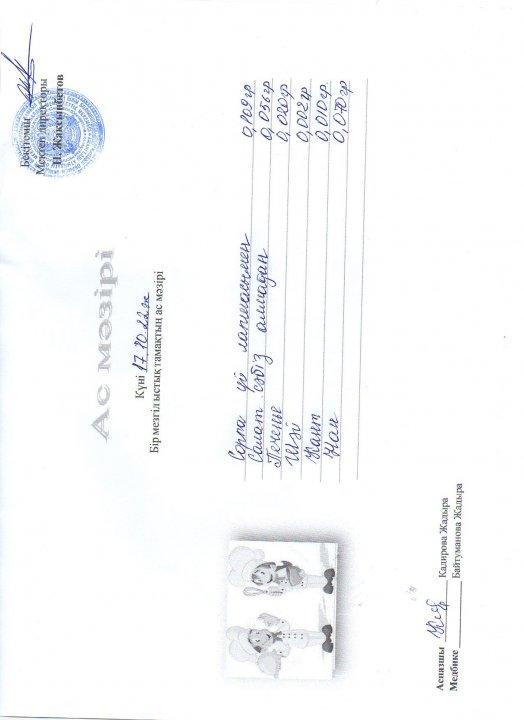 Бекітемін
Мектеп директоры
Н. Жаксынбетов
Ас мәзірі
Күні 17.10.22ж
Бір мезгіл ыстық тамақтың ас мәзірі
Сорпа үй лапшасымен 0,109гр
Салат сәбіз алмадан 0,056гр
Печенье 0,020гр
Шәй 0,002гр
Қант 0,010гр
Нан 0,070гр
Асназшы Кадирова Жадыра
Медбике Байтуманова Жадыра